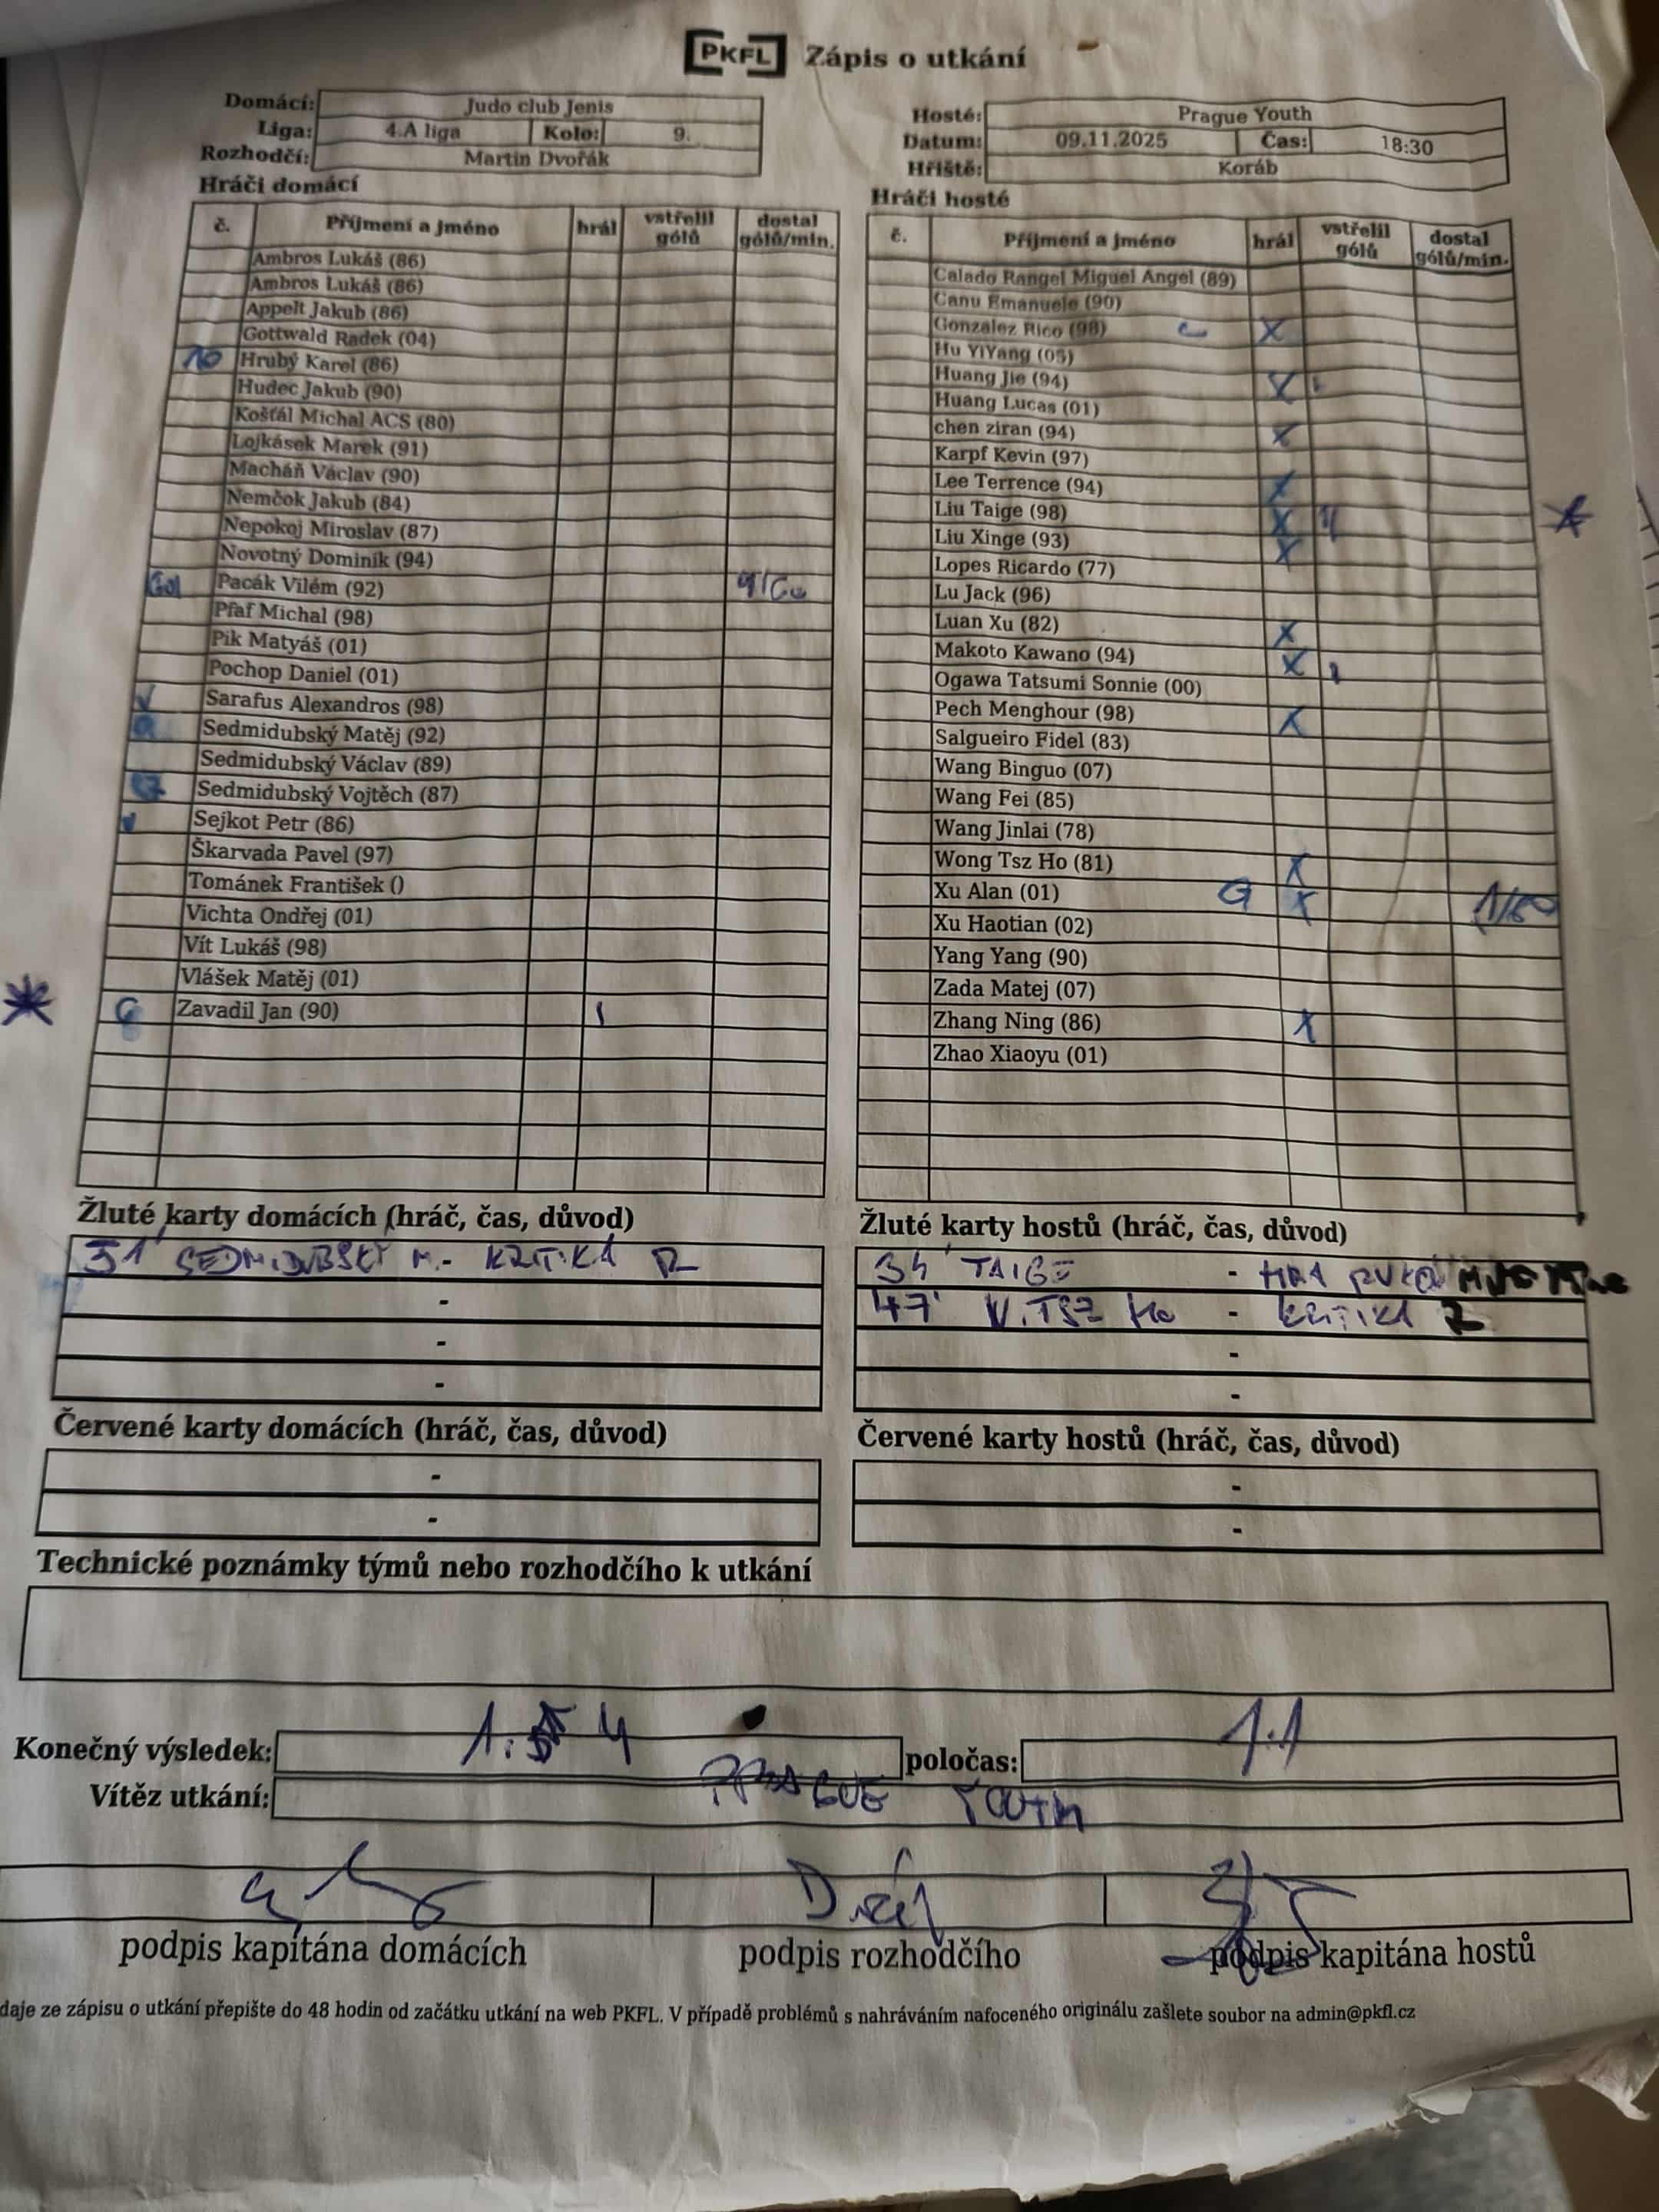 PKFL Zápis o utkání
Domácí: Judo club Jenis
Liga: 4.A liga Kolo: 9.
Rozhodčí: Martin Dvořák
Hosté: Prague Youth
Datum: 09.11.2025 Čas: 18:30
Hřiště: Koráb
Hráči domácí
č. Příjmení a jméno hrál vstřelil gólů dostal gólů/min.
Ambros Lukáš (86)
Ambros Lukáš (86)
Appelt Jakub (86)
Gottwald Radek (04)
10 Hrubý Karel (86)
Hudec Jakub (90)
Košťál Michal ACS (80)
Lojkásek Marek (91)
Macháň Václav (90)
Nemčok Jakub (84)
Nepokoj Miroslav (87)
Novotný Dominik (94)
Pacák Vilém (92)
Pfaf Michal (98)
Pik Matyáš (01)
Pochop Daniel (01)
Sarafus Alexandros (98)
Sedmidubský Matěj (92)
Sedmidubský Václav (89)
Sedmidubský Vojtěch (87)
Sejkot Petr (86)
Škarvada Pavel (97)
Tománek František ()
Vichta Ondřej (01)
Vít Lukáš (98)
Vlášek Matěj (01)
Zavadil Jan (90)
Hráči hosté
č. Příjmení a jméno hrál vstřelil gólů dostal gólů/min.
Calado Rangel Miguel Angel (89)
Canu Emanuele (90)
Gonzalez Rico (98) C X
Hu YiYang (05)
Huang Jie (94) X 1
Huang Lucas (01)
chen ziran (94) X
Karpf Kevin (97)
Lee Terrence (94) X
Liu Taige (98) X
Liu Xinge (93) X
Lopes Ricardo (77)
Lu Jack (96)
Luan Xu (82) X
Makoto Kawano (94) X 1
Ogawa Tatsumi Sonnie (00)
Pech Menghour (98) X
Salgueiro Fidel (83)
Wang Binguo (07)
Wang Fei (85)
Wang Jinlai (78)
Wong Tsz Ho (81) X
Xu Alan (01) G X 1/60
Xu Haotian (02)
Yang Yang (90)
Zada Matej (07)
Zhang Ning (86) X
Zhao Xiaoyu (01)
Žluté karty domácích (hráč, čas, důvod)
51' SEDMIDUBSKÝ M. - KRITIKA R
-
-
-
Žluté karty hostů (hráč, čas, důvod)
34' TAIGE - HRA RUKOU
47' W. TSZ Ho - KRITIKA R
-
-
Červené karty domácích (hráč, čas, důvod)
-
-
Červené karty hostů (hráč, čas, důvod)
-
-
Technické poznámky týmů nebo rozhodčího k utkání
Konečný výsledek: 1: 4 poločas: 1:1
Vítěz utkání: PRAGUE YOUTH
podpis kapitána domácích podpis rozhodčího podpis kapitána hostů
daje ze zápisu o utkání přepište do 48 hodin od začátku utkání na web PKFL. V případě problémů s nahráváním nafoceného originálu zašlete soubor na admin@pkfl.cz